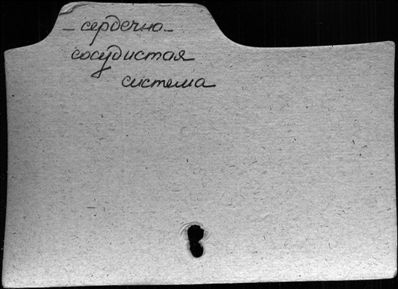 - сердечно-
сосудистая
система